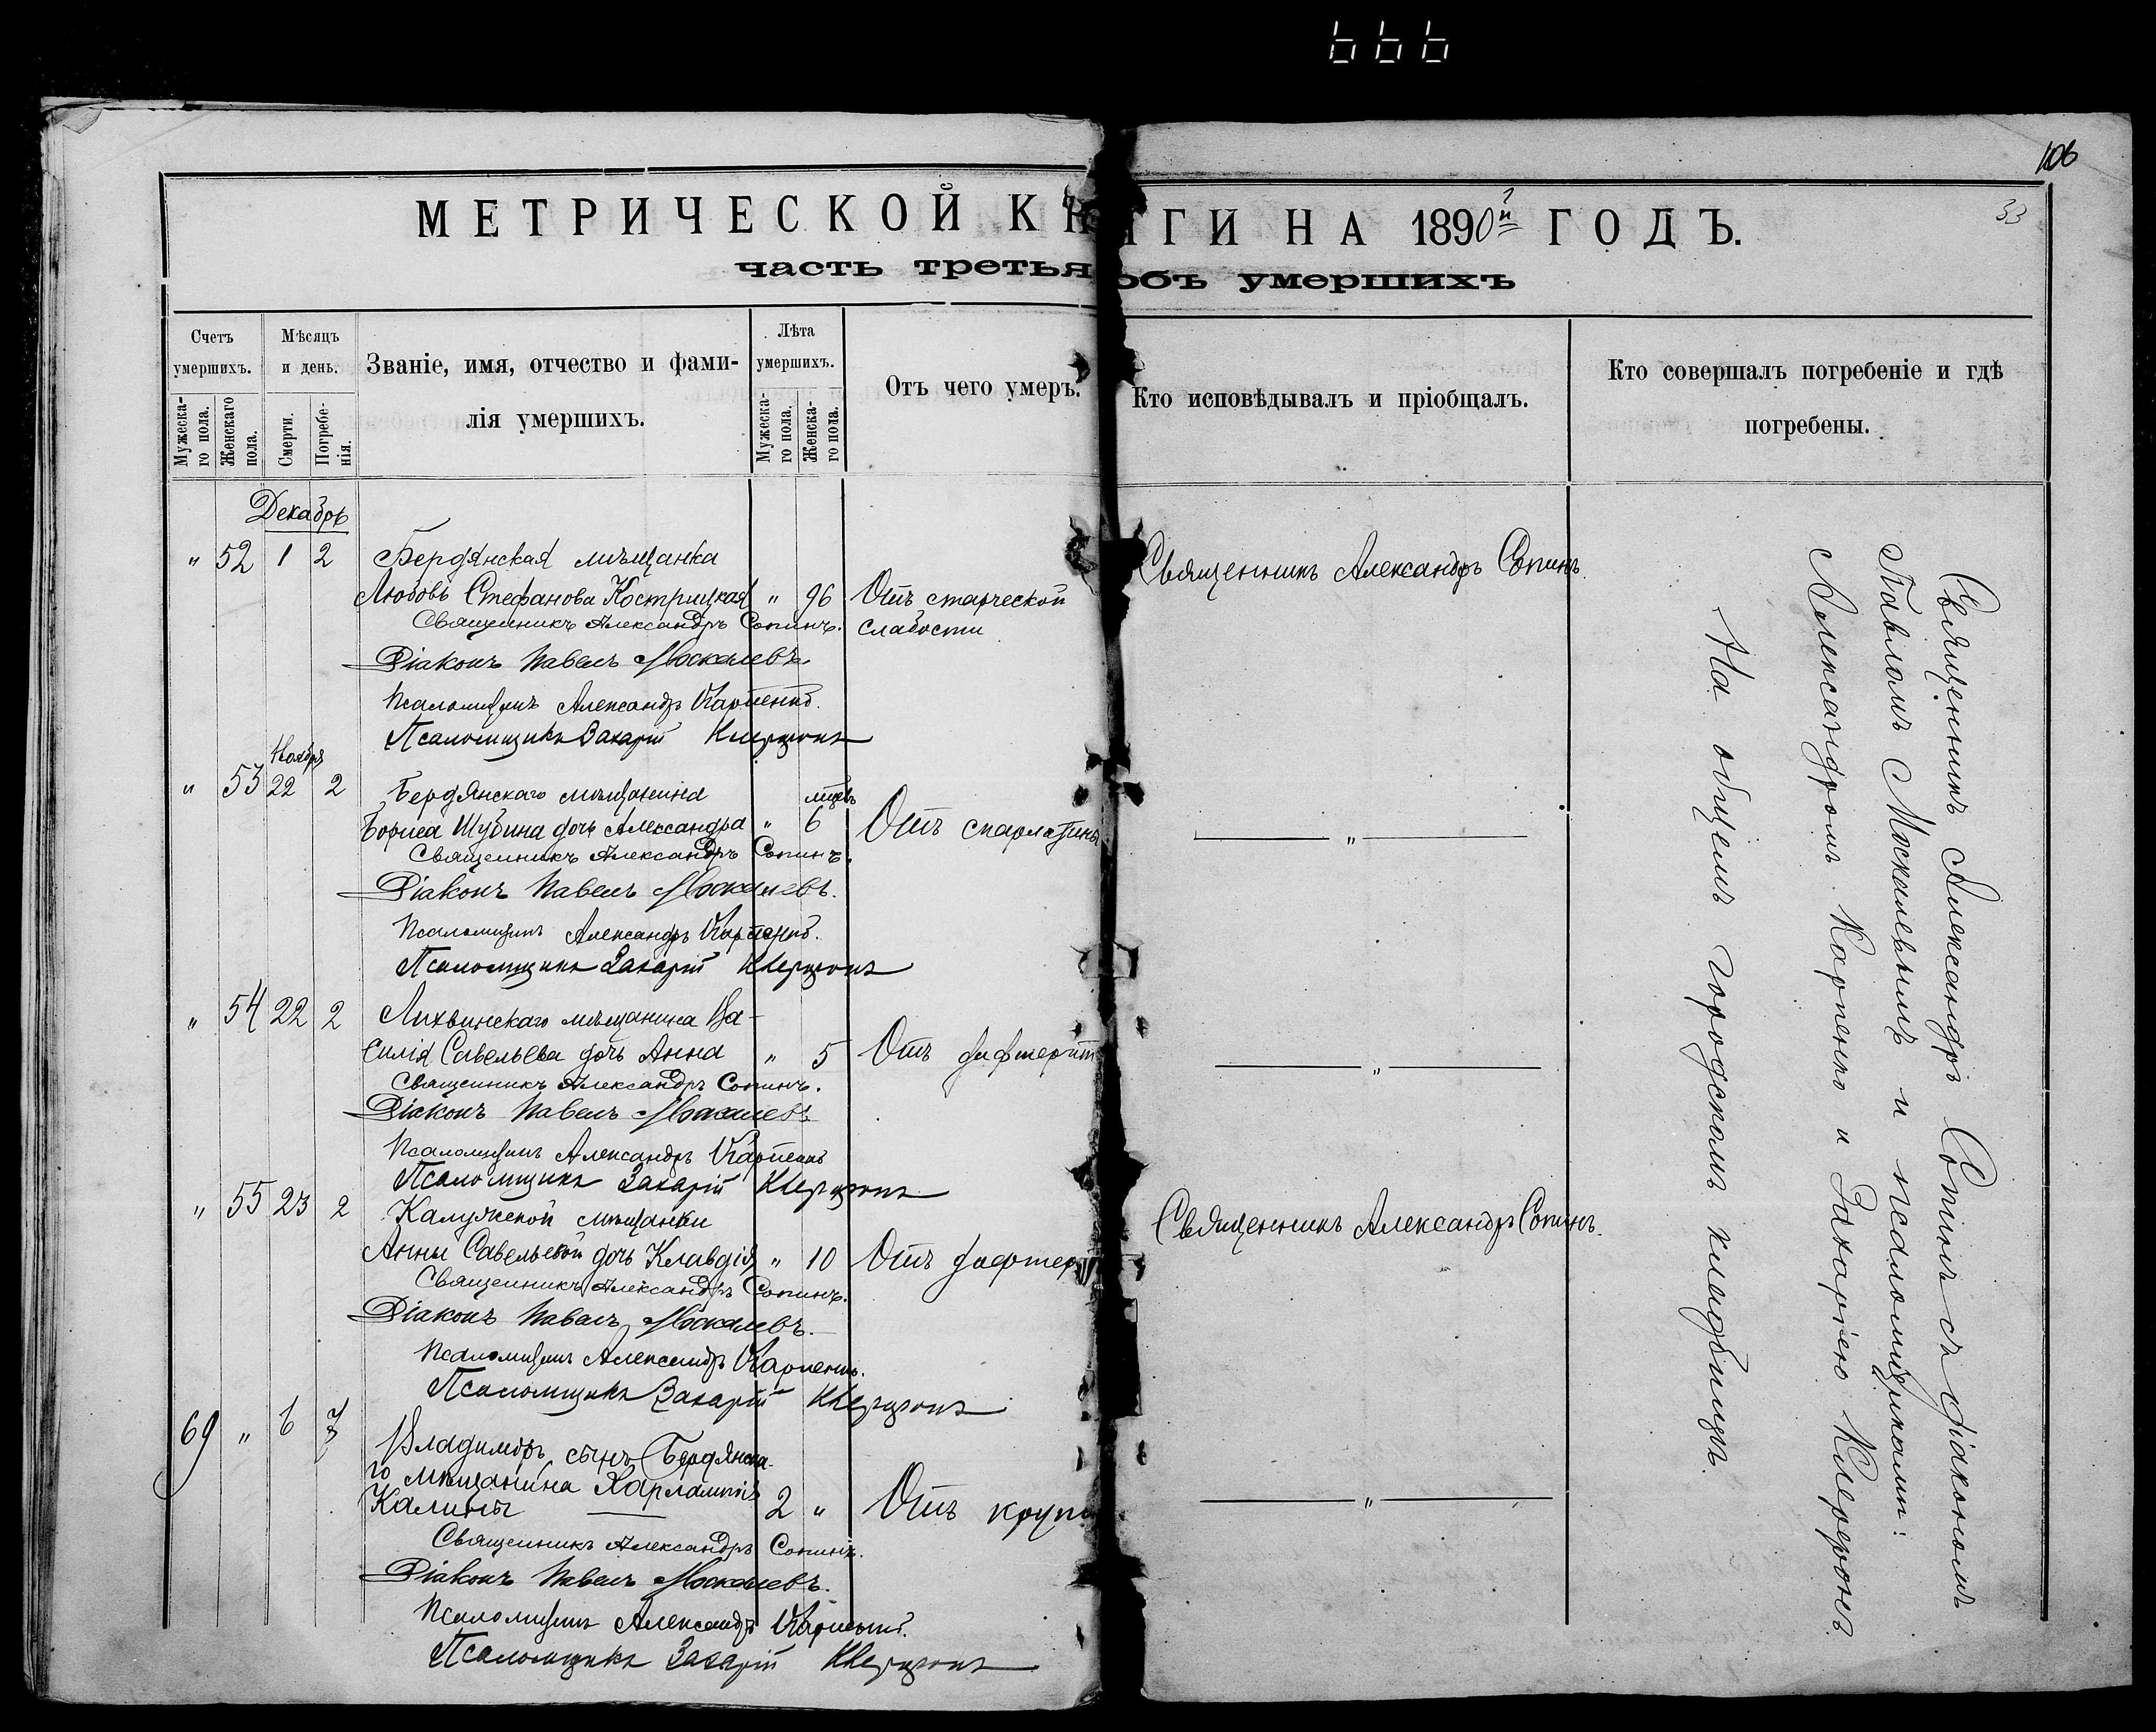 106
33
МЕТРИЧЕСКОЙ КНИГИ НА 1890й ГОДЪ.
часть третья объ умершихъ
Счетъ умершихъ.
Мужескаго пола.
Женскаго пола.
Мѣсяцъ и день.
Смерти.
Погребенія.
Званіе, имя, отчество и фами-
лія умершихъ.
Лѣта умершихъ.
Мужескаго пола.
Женскаго пола.
Отъ чего умеръ.
Кто исповѣдывалъ и пріобщалъ.
Кто совершалъ погребеніе и гдѣ
погребены.
Декабрь
" 52 1 2 Бердянская мѣщанка
Любовь Стефанова Кострицкая " 96 Отъ старческой
слабости
Священникъ Александръ Сопинъ.
Священникъ Александръ Сопинъ.
Діаконъ Павелъ Москалевъ.
Псаломщикъ Александръ Карпенко.
Псаломщикъ Захарій
Ноябрь
" 53 22 2 Бердянскаго мѣщанина
Бориса Шубина дочь Александра " 6 Отъ скарлатины "
Священникъ Александръ Сопинъ.
Діаконъ Павелъ Москалевъ.
Псаломщикъ Александръ Карпенко.
Псаломщикъ Захарій
" 54 22 2 Лихвинскаго мѣщанина Ва-
силія Савельева дочь Анна " 5 Отъ дифтерит "
Священникъ Александръ Сопинъ.
Діаконъ Павелъ Москалевъ
Псаломщикъ Александръ Карпенко
Псаломщикъ Захарій
" 55 23 2 Калужской мѣщанки
Анны Савельевой дочь Клавдія " 10 Отъ дифтер
Священникъ Александръ Сопинъ.
Священникъ Александръ Сопинъ.
Діаконъ Павелъ Москалевъ.
Псаломщикъ Александръ Карпенко.
Псаломщикъ Захарій
69 " 6 7 Владиміръ, сынъ Бердянска-
го мѣщанина Харлампія
Калины 2 " Отъ круп "
Священникъ Александръ Сопинъ.
Діаконъ Павелъ Москалевъ.
Псаломщикъ Александръ Карпенко.
Псаломщикъ Захарій
Священникъ Александръ Сопинъ съ діакономъ
Павломъ Москалевымъ и псаломщиками:
Александромъ Карпенко и Захаріею
На общемъ городскомъ кладбищѣ.